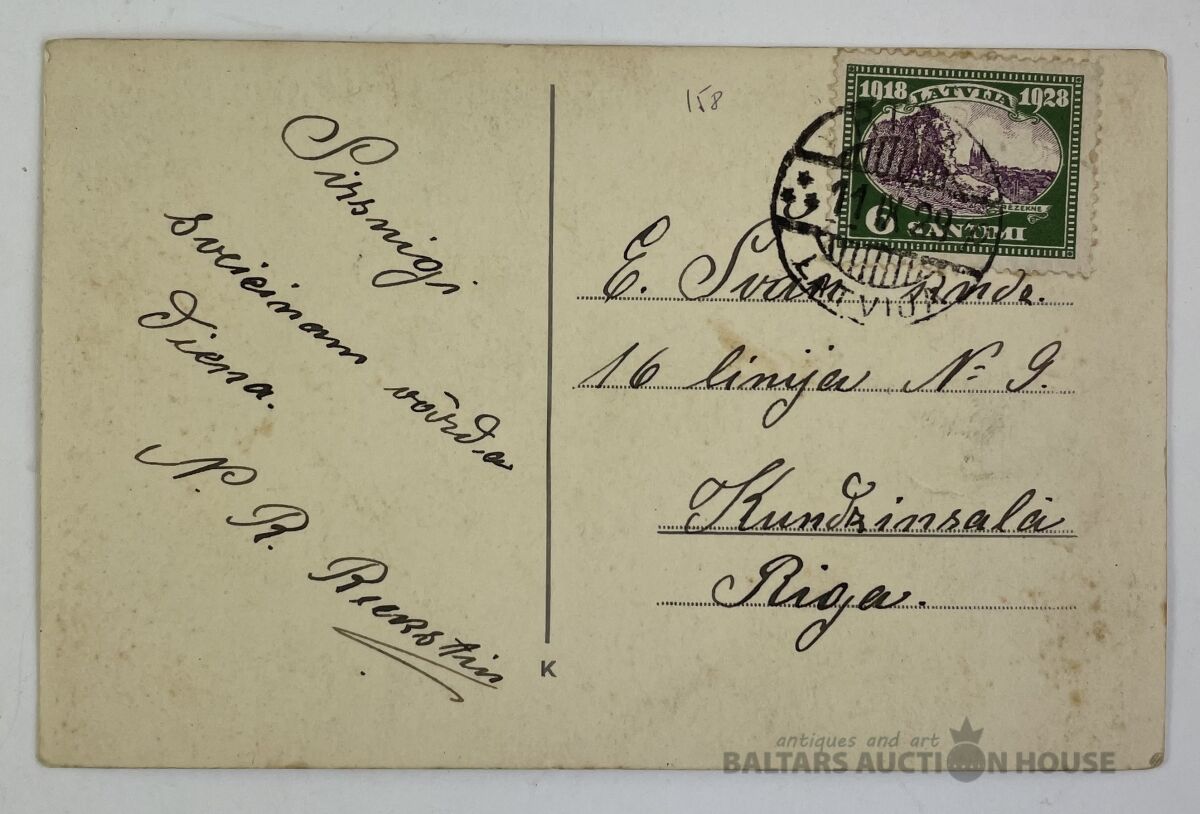 Sirsnigi
sveicinam vārda
Diena.
N. R. Riekstin
K
158
1918 LATVIJA 1928
RĒZEKNE
6 SANTIMI
11 29
LATVIJA
E.
16 linija № 9.
Kundzinsalā
Riga.
antiques and art
BALTARS AUCTION HOUSE